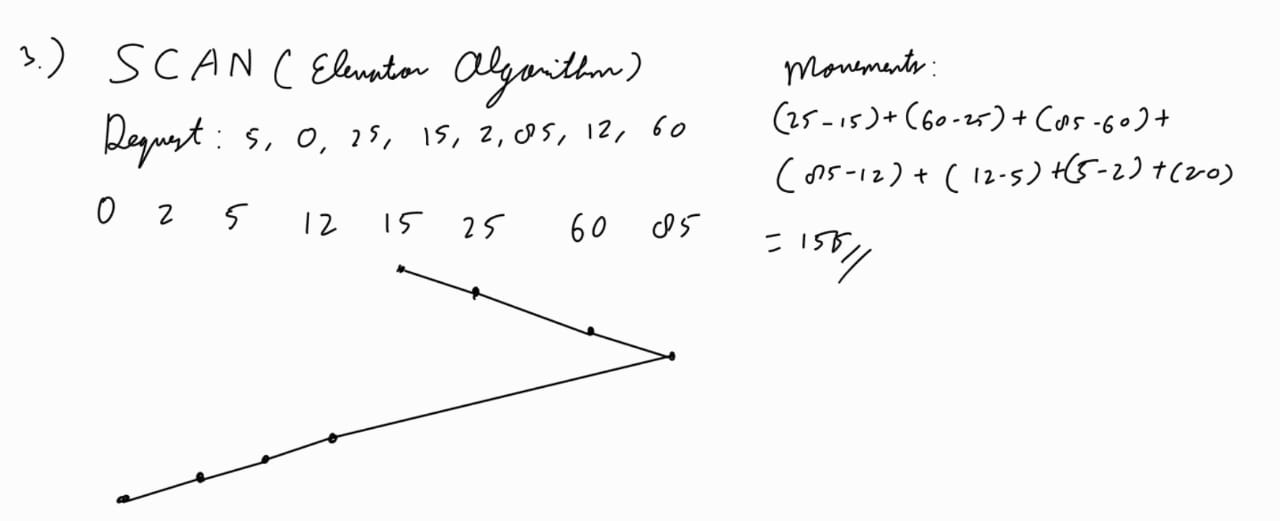 3.) SCAN (Elevator Algorithm)
Request: 5, 0, 25, 15, 2, 85, 12, 60
0 2 5 12 15 25 60 85
Movements:
(25-15)+(60-25)+(85-60)+
(85-12)+(12-5)+(5-2)+(2-0)
= 155//